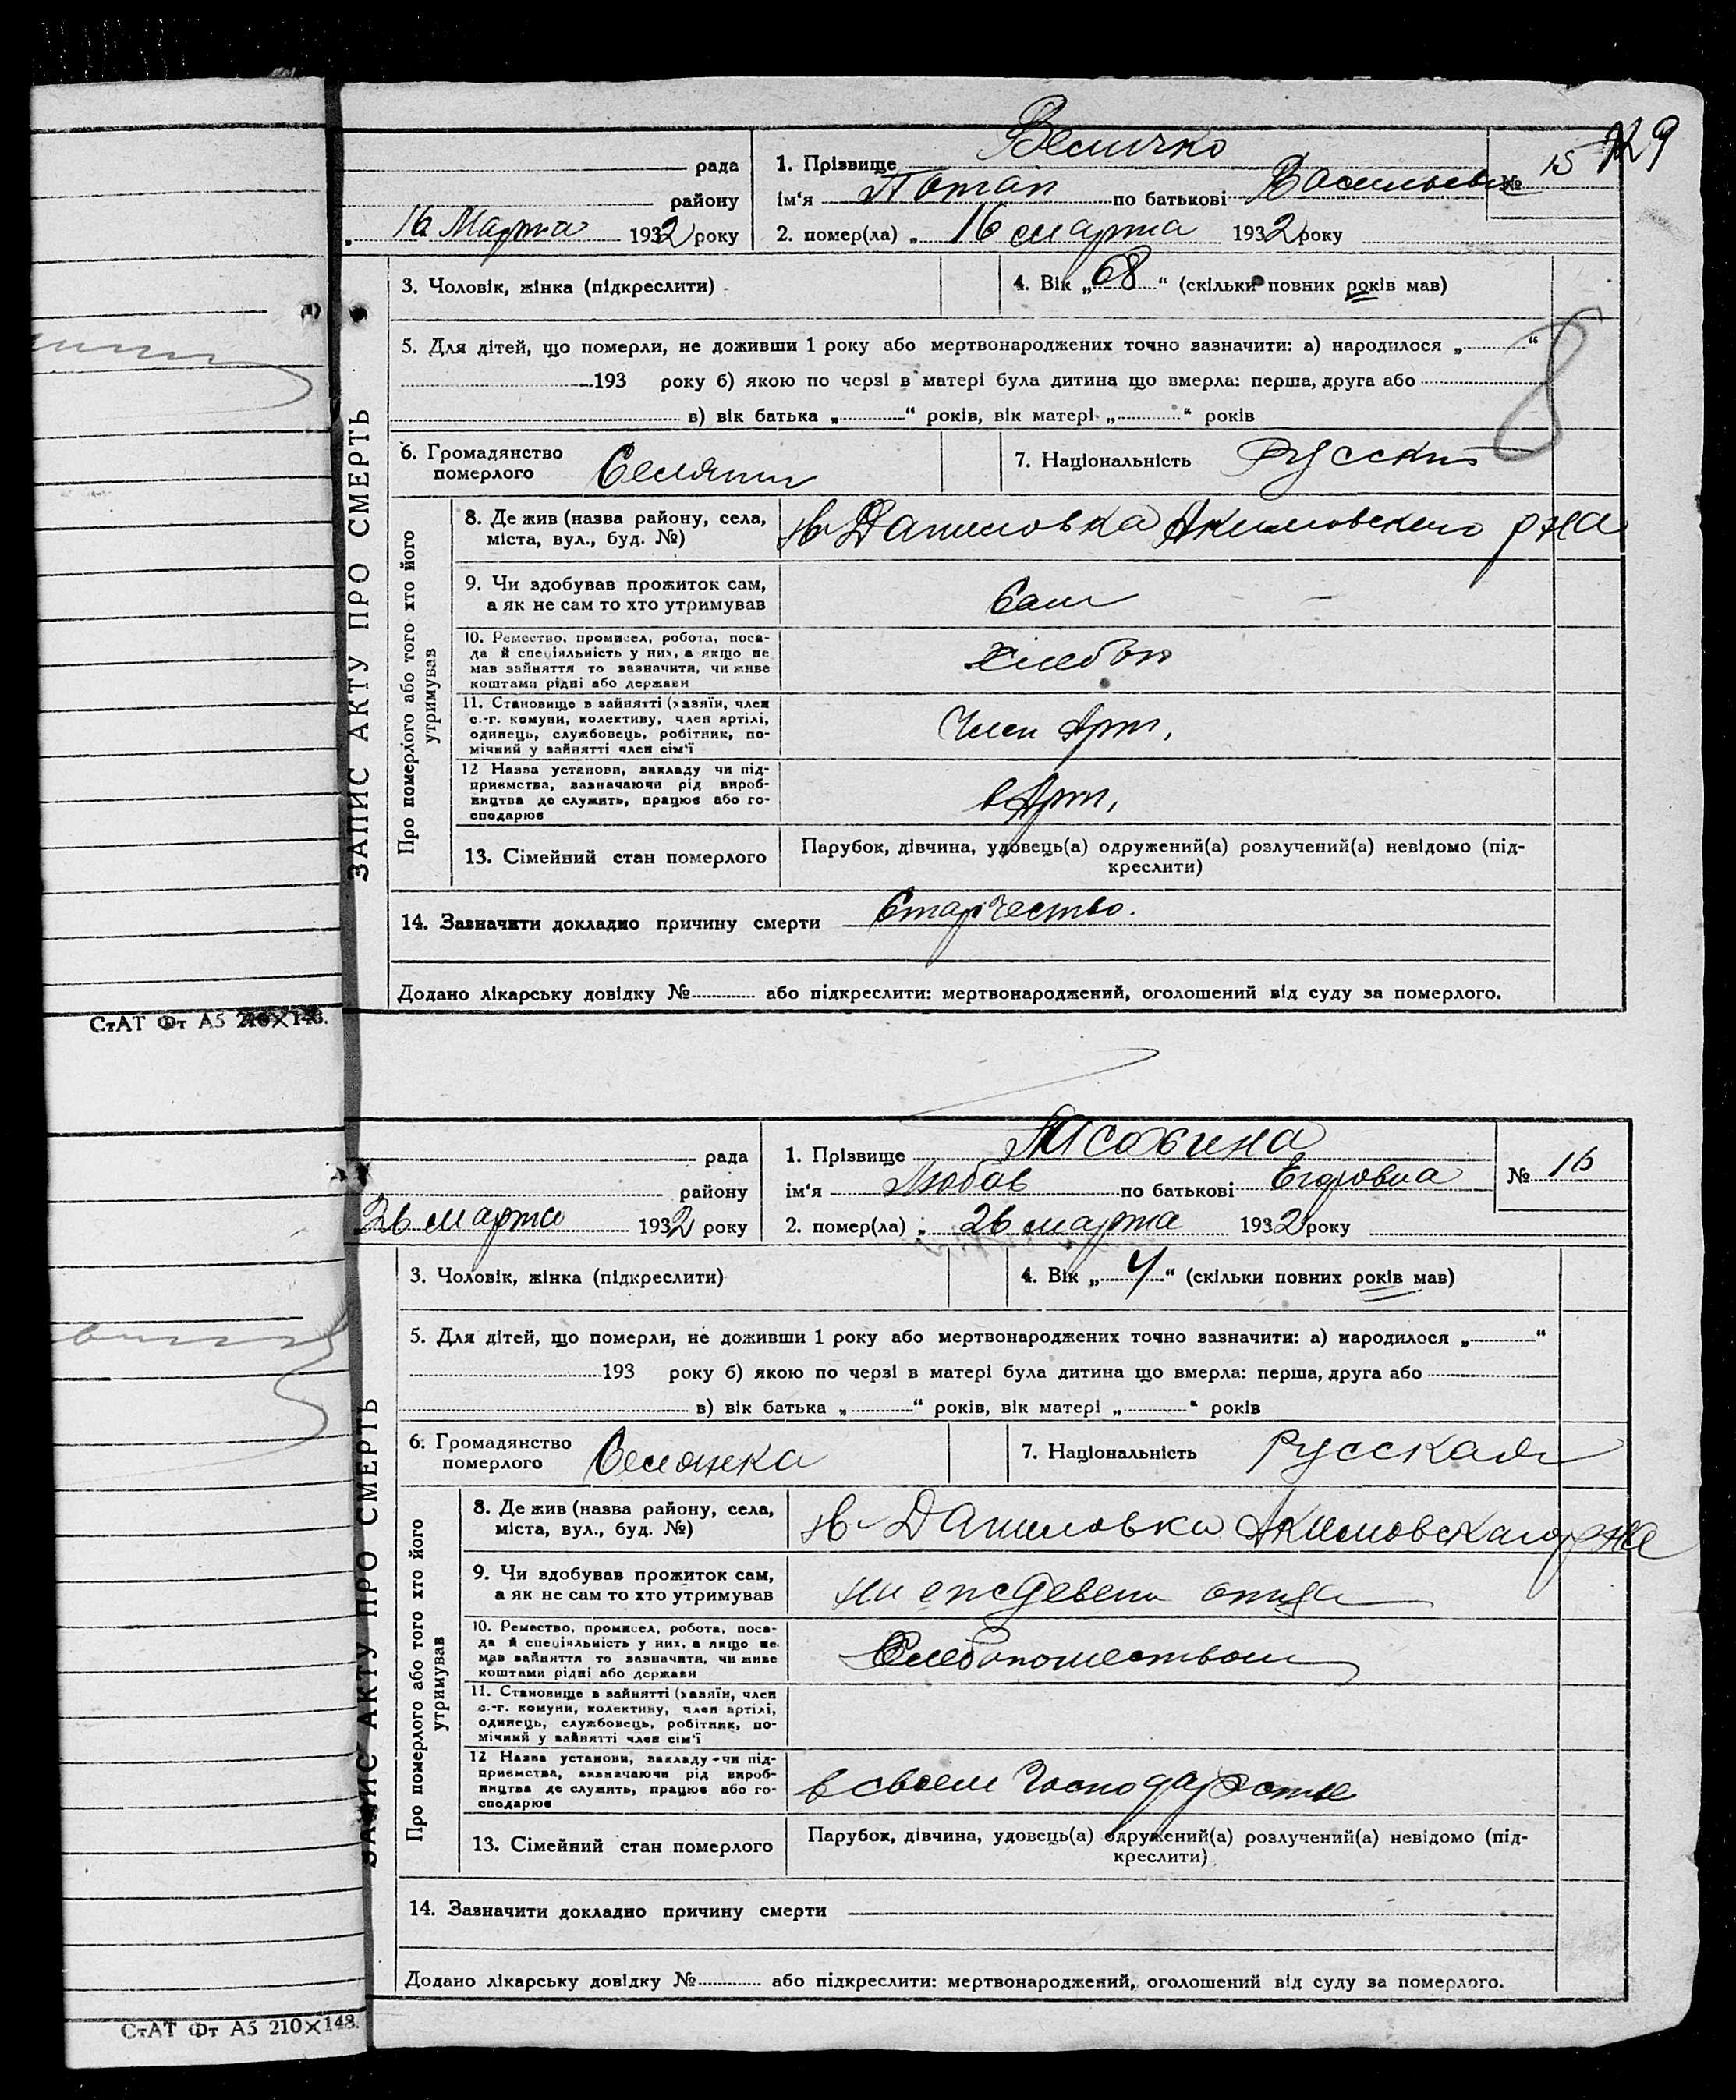 Величко
рада 1. Прізвище № 15 129
району ім'я Потап по батькові Васильевич
16 Марта 1932 року 2. помер(ла) „ 16 марта 1932 року
3. Чоловік, жінка (підкреслити) 4. Вік „ 68 “ (скільки повних років мав)
5. Для дітей, що померли, не доживши 1 року або мертвонароджених точно зазначити: а) народилося „ “
193 року б) якою по черзі в матері була дитина що вмерла: перша, друга або
в) вік батька „ “ років, вік матері „ “ років
8
6. Громадянство
померлого Селянин 7. Національність Русский
8. Де жив (назва району, села,
міста, вул., буд. №) Н-Даниловка Акимовского р-на
9. Чи здобував прожиток сам,
а як не сам то хто утримував Сам
10. Ремество, промисел, робота, поса-
да й спеціяльність у них, а якщо не
мав зайняття то зазначити, чи живе
коштами рідні або держави Хлебоп
11. Становище в зайнятті (хазяїн, член
с.-г. комуни, колективу, член артілі,
одинець, службовець, робітник, по-
мічний у зайнятті член сім'ї Член Арт,
12 Назва установи, закладу чи під-
приємства, зазначаючи рід вироб-
ництва де служить, працює або го-
сподарює в Арт,
13. Сімейний стан померлого Парубок, дівчина, удовець(а) одружений(а) розлучений(а) невідомо (під-
креслити)
Про померлого або того хто його
утримував
ЗАПИС АКТУ ПРО СМЕРТЬ
14. Зазначити докладно причину смерти Старчество.
Додано лікарську довідку № або підкреслити: мертвонароджений, оголошений від суду за померлого.
СтАТ Фт А5 210×148.
рада 1. Прізвище № 16
району ім'я Любов по батькові Егоровна
26 марта 1932 року 2. помер(ла) „ 26 марта 1932 року
3. Чоловік, жінка (підкреслити) 4. Вік „ 4 “ (скільки повних років мав)
5. Для дітей, що померли, не доживши 1 року або мертвонароджених точно зазначити: а) народилося „ “
193 року б) якою по черзі в матері була дитина що вмерла: перша, друга або
в) вік батька „ “ років, вік матері „ “ років
6. Громадянство
померлого Селянка 7. Національність Русская
8. Де жив (назва району, села,
міста, вул., буд. №) Н-Даниловка Акимовскаго р-на
9. Чи здобував прожиток сам,
а як не сам то хто утримував на иждевени отца
10. Ремество, промисел, робота, поса-
да й спеціяльність у них, а якщо не
мав зайняття то зазначити, чи живе
коштами рідні або держави Хлебопашеством
11. Становище в зайнятті (хазяїн, член
с.-г. комуни, колективу, член артілі,
одинець, службовець, робітник, по-
мічний у зайнятті член сім'ї
12 Назва установи, закладу чи під-
приємства, зазначаючи рід вироб-
ництва де служить, працює або го-
сподарює в своем господарстве
13. Сімейний стан померлого Парубок, дівчина, удовець(а) одружений(а) розлучений(а) невідомо (під-
креслити)
Про померлого або того хто його
утримував
ЗАПИС АКТУ ПРО СМЕРТЬ
14. Зазначити докладно причину смерти
Додано лікарську довідку № або підкреслити: мертвонароджений, оголошений від суду за померлого.
СтАТ Фт А5 210×148.